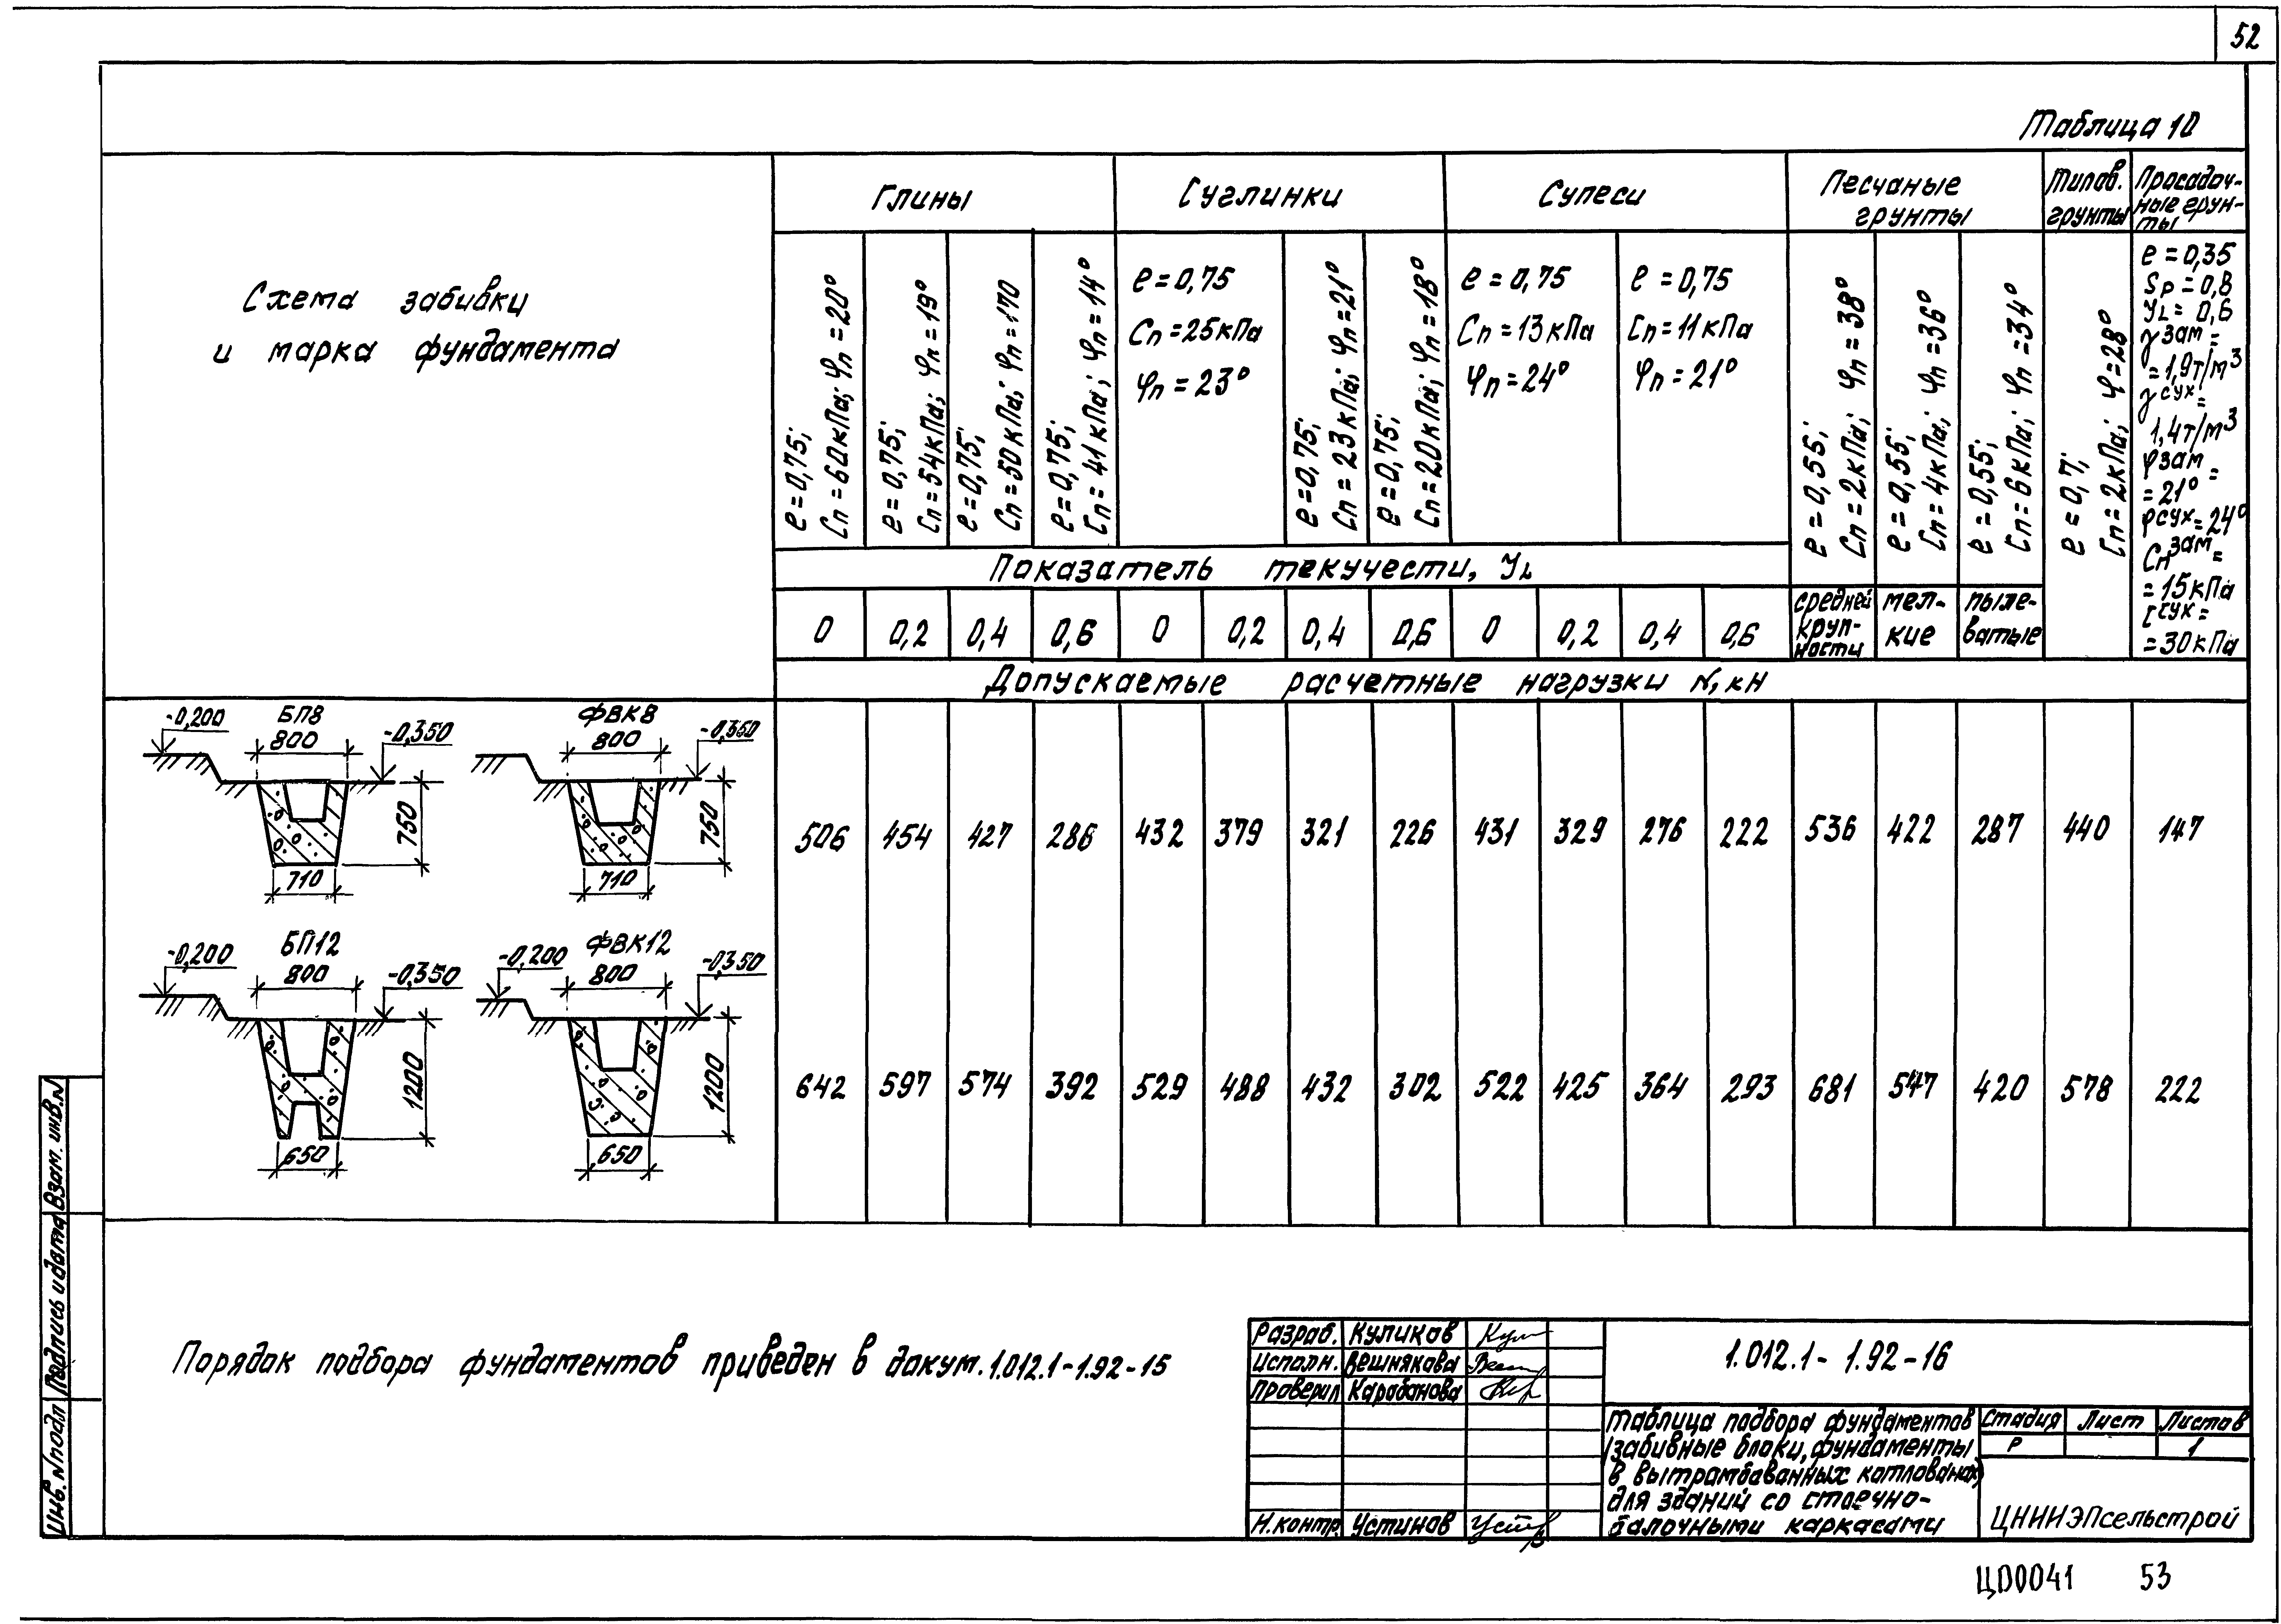 52
Таблица 10
Схема забивки
и марка фундамента
Глины
Суглинки
Супеси
Песчаные
грунты
Типов.
грунты
Просадоч-
ные грун-
ты
e=0,75;
Cп=60кПа; φп=20°
e=0,75;
Cп=54кПа; φп=19°
e=0,75;
Cп=50кПа; φп=170
e=0,75;
Cп=41кПа; φп=14°
e=0,75
Cп=25кПа
φп=23°
e=0,75;
Cп=23кПа; φп=21°
e=0,75;
Cп=20кПа; φп=18°
e=0,75
Cп=13кПа
φп=24°
e=0,75
Cп=11кПа
φп=21°
e=0,55;
Cп=2кПа; φп=38°
e=0,55;
Cп=4кПа; φп=36°
e=0,55;
Cп=6кПа; φп=34°
e=0,7;
Cп=2кПа; φ=28°
e=0,35
Sр=0,8
УL=0,6
γзам=
=1,9т/м³
γсух=
1,4т/м³
φзам=
=21°
φсух=24°
Cпзам=
=15кПа
Cсух=
=30кПа
Показатель текучести, УL
0 0,2 0,4 0,6 0 0,2 0,4 0,6 0 0,2 0,4 0,6
средней
круп-
ности
мел-
кие
пыле-
ватые
Допускаемые расчетные нагрузки N, кН
-0,200 БП8 800 -0,350 750 710
ФВК8 800 -0,350 750 710
506 454 427 286 432 379 321 226 431 329 276 222 536 422 287 440 147
-0,200 БП12 800 -0,350 1200 650
-0,200 ФВК12 800 -0,350 1200 650
642 597 574 392 529 488 432 302 522 425 364 293 681 547 420 578 222
Порядок подбора фундаментов приведен в докум. 1.012.1-1.92-15
Разраб. Куликов
Исполн. Вешнякова
Проверил Карабанова
Н.контр. Устинов
1.012.1-1.92-16
Таблица подбора фундаментов
(забивные блоки, фундаменты
в вытрамбованных котлованах)
для зданий со стоечно-
балочными каркасами
Стадия Лист Листов
Р 1
ЦНИИЭПсельстрой
Инв. N подл Подпись и дата Взам. инв. N
ЦО0041 53